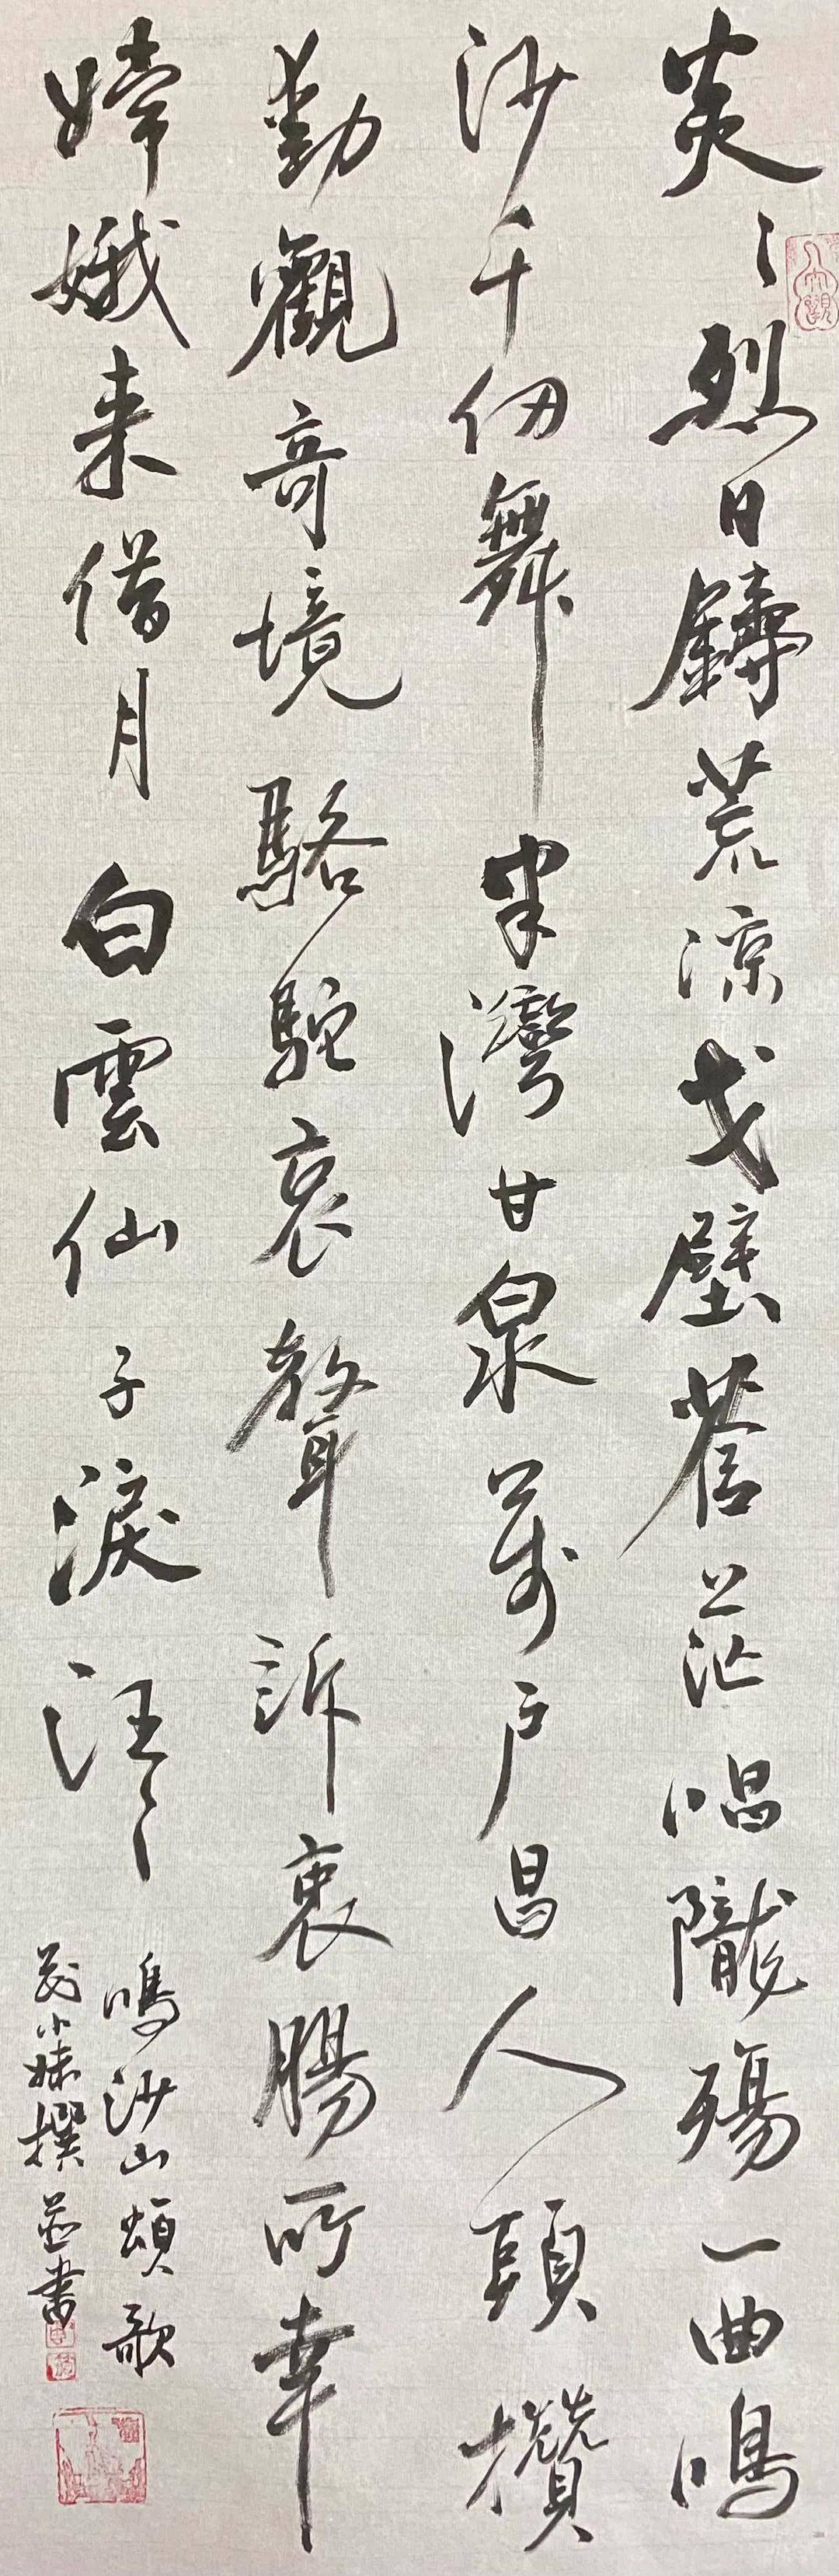 炎〻烈日鑄荒涼戈壁蒼茫唱隴殤一曲鳴
沙千仞舞半灣甘泉萬戶昌人頭攢
動觀奇境駱駝哀聲訴衷腸所幸
嫦娥来借月白雲仙子淚汪〻
鳴沙山頌歌
小妹撰並書
大觀